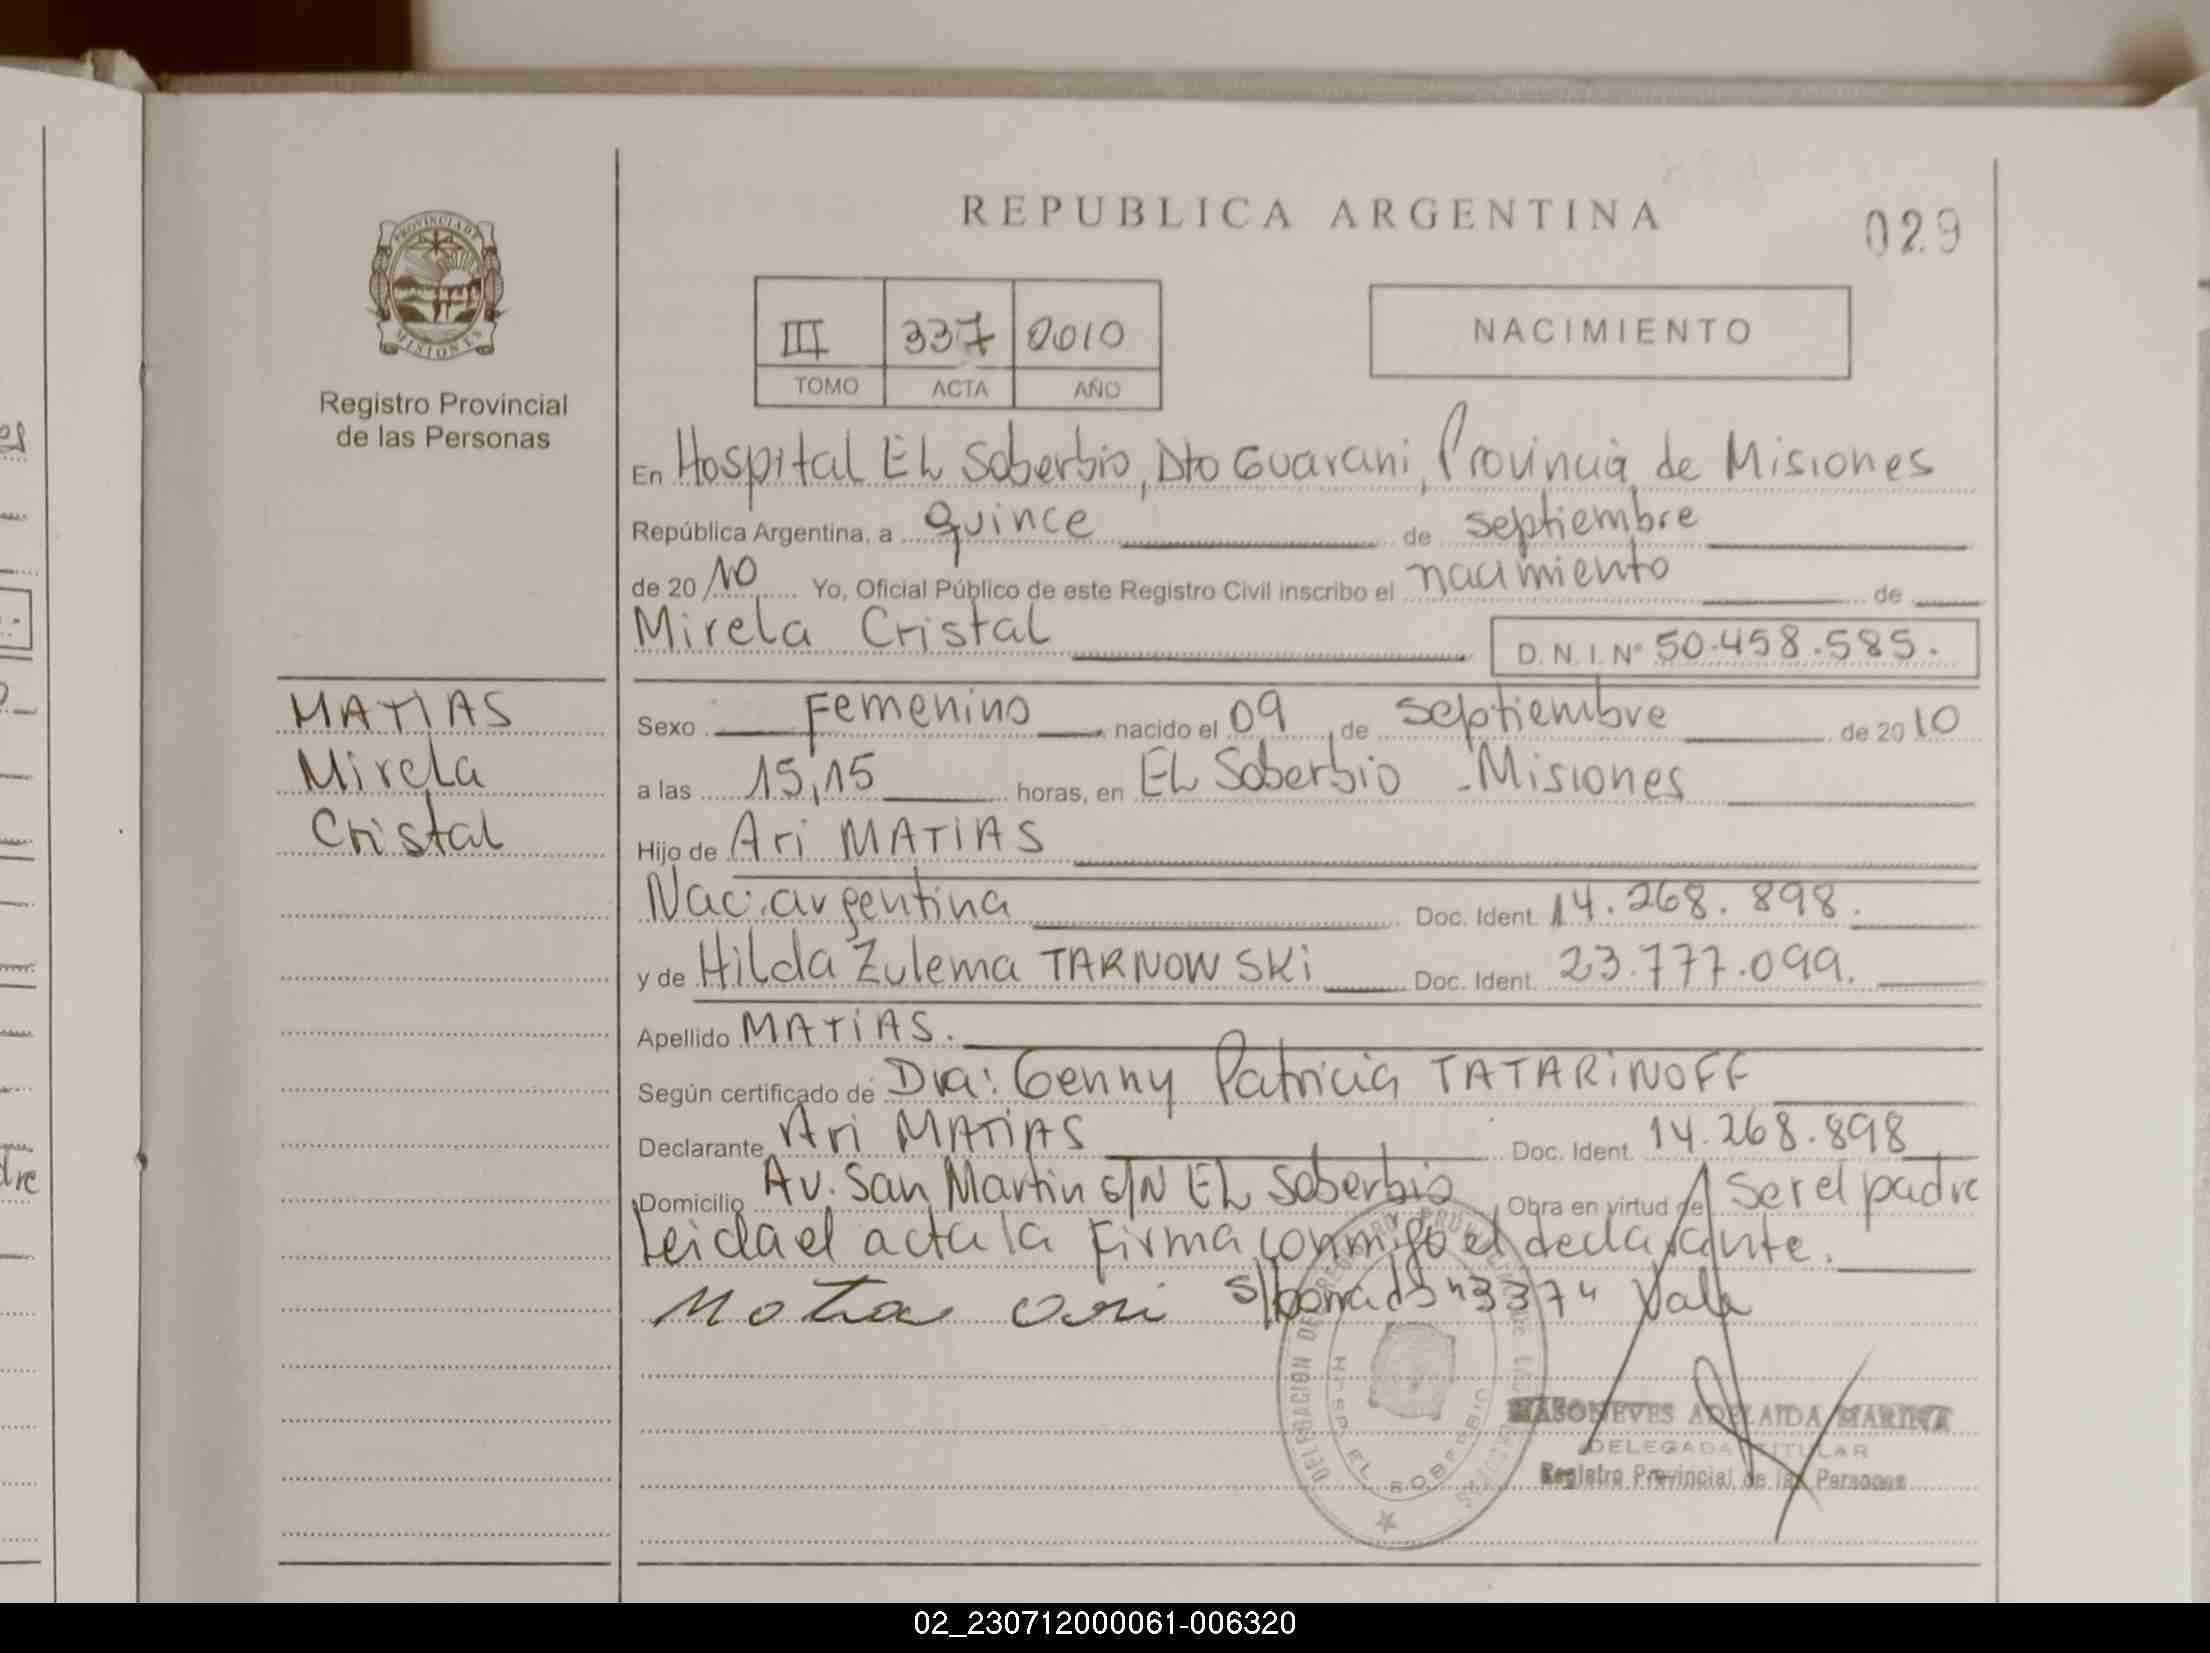 REPUBLICA ARGENTINA
029
PROVINCIA DE
MISIONES
Registro Provincial
de las Personas
III 337 2010
TOMO ACTA AÑO
NACIMIENTO
En Hospital EL Soberbio, Dto Guarani, Provincia de Misiones
República Argentina, a quince de septiembre
de 2010 Yo, Oficial Público de este Registro Civil inscribo el nacimiento de
Mirela Cristal D.N.I. Nº 50.458.585.
MATIAS
Mirela
Cristal
Sexo Femenino nacido el 09 de septiembre de 2010
a las 15,15 horas, en EL Soberbio - Misiones
Hijo de Ari MATIAS
Nac: argentina Doc. Ident. 14.268.898.
y de Hilda Zulema TARNOWSKi Doc. Ident. 23.777.099.
Apellido MATiAS.
Según certificado de Dra: Genny Patricia TATARiNOFF
Declarante Ari MATiAS Doc. Ident. 14.268.898
Domicilio Av. San Martin S/N EL Soberbio Obra en virtud de Ser el padre
Leida el acta la Firma conmigo el declarante.
Matias Ari S/borrado "337" Vale
DELEGACION DE REGISTRO PROVINCIAL DE LAS PERSONAS
HOSP. EL SOBERBIO
MASONEVES ADELAIDA MARINA
DELEGADA TITULAR
Registro Provincial de las Personas
dre
02_230712000061-006320